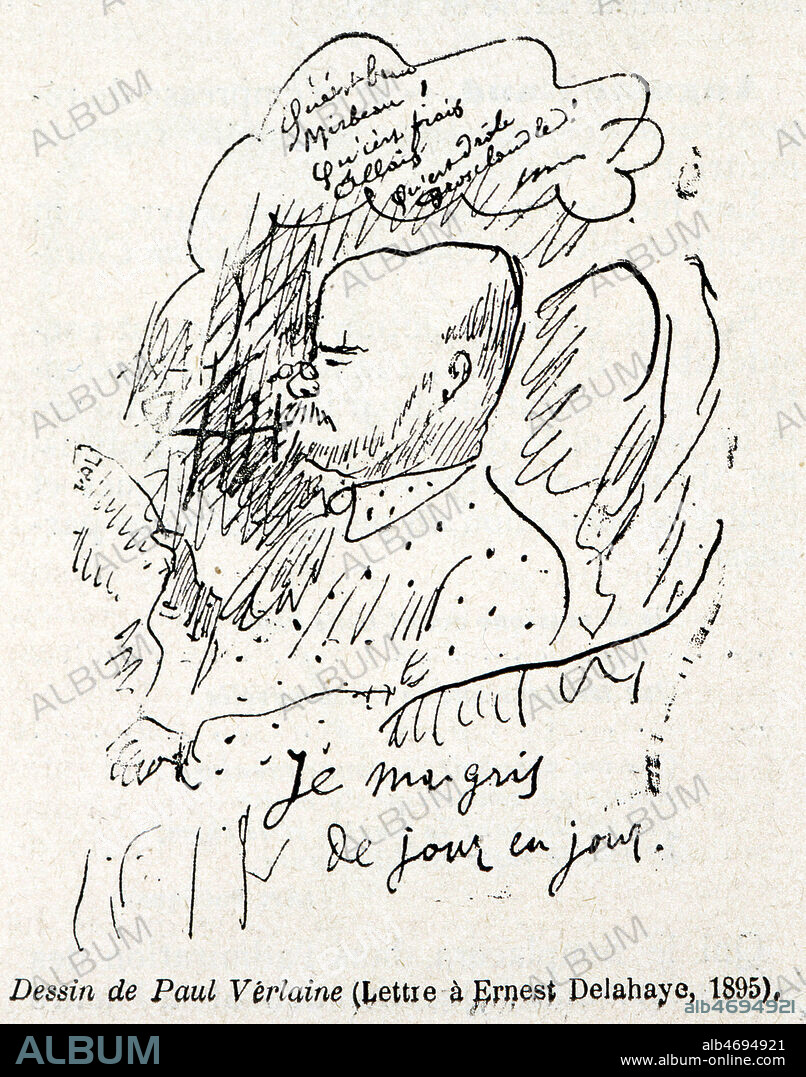 Qu'est beau
Mirbeau !
Qu'est frais
Allais
Qu'est drôle
Grosclaude !
Je maigris
de jour en jour.
Dessin de Paul Verlaine (Lettre à Ernest Delahaye, 1895).
alb4694921
ALBUM
alb4694921
www.album-online.com